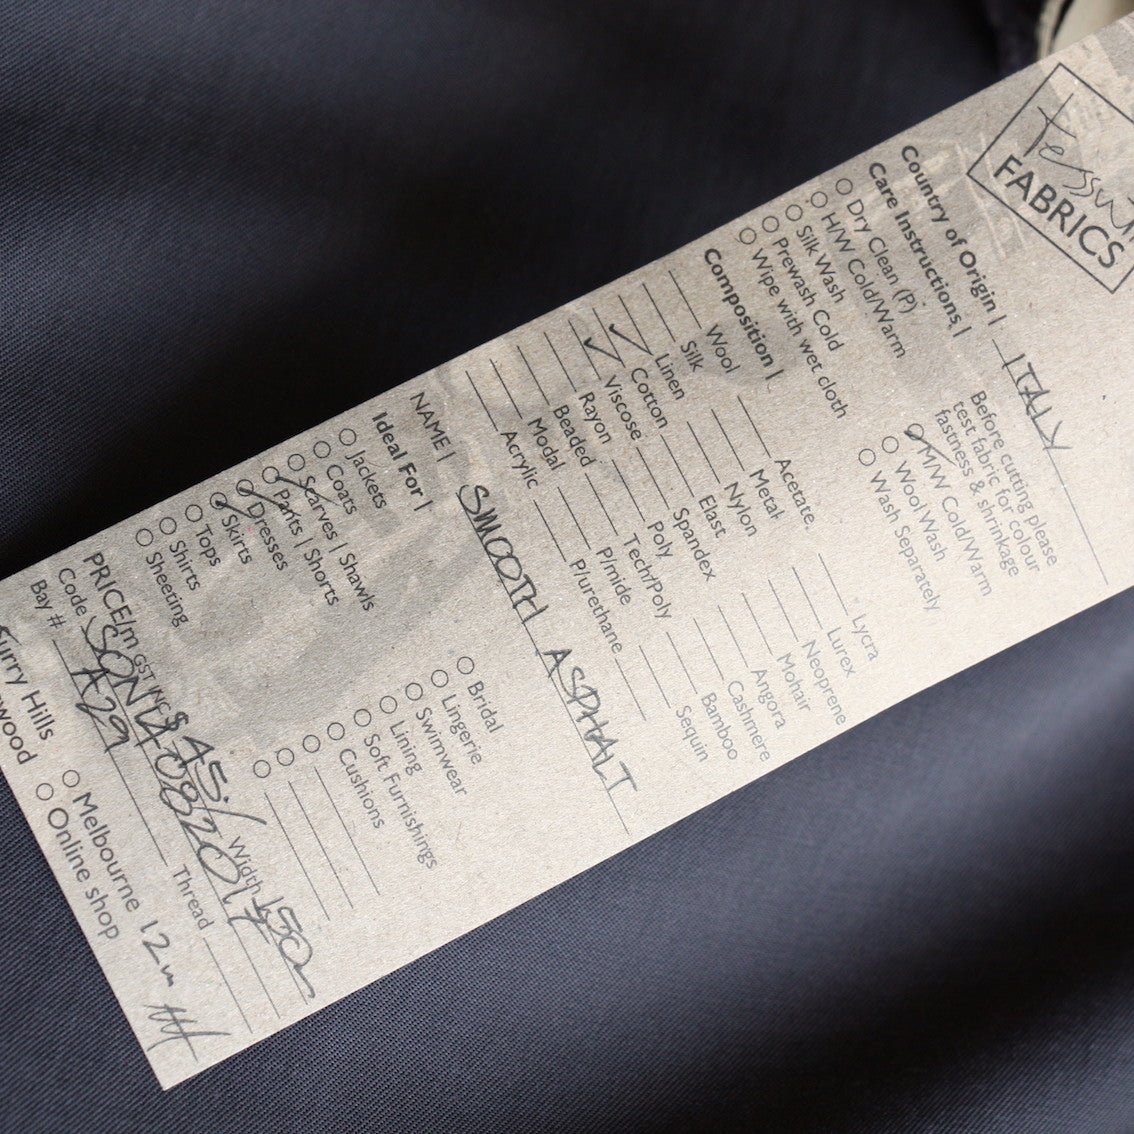 FABRICS
Country of Origin | ITALY
Care Instructions |
Dry Clean (P)
H/W Cold/Warm
Silk Wash
Prewash Cold
Wipe with wet cloth
Before cutting please
test fabric for colour
fastness & shrinkage
M/W Cold/Warm
Wool Wash
Wash Separately
Composition |
Wool
Silk
Linen
✓ Cotton
✓ Viscose
Rayon
Beaded
Modal
Acrylic
Acetate
Metal
Nylon
Elast
Spandex
Poly
Tech/Poly
P/mide
P/urethane
Lycra
Lurex
Neoprene
Mohair
Angora
Cashmere
Bamboo
Sequin
NAME | SMOOTH ASPHALT
Ideal For |
Jackets
Coats
Scarves | Shawls
Pants | Shorts
Dresses
Skirts
Tops
Shirts
Sheeting
Bridal
Lingerie
Swimwear
Lining
Soft Furnishings
Cushions
PRICE/m GST INC $45./ Width 150
Code
Bay # A291 Thread
urry Hills
wood
Melbourne
Online shop
12m